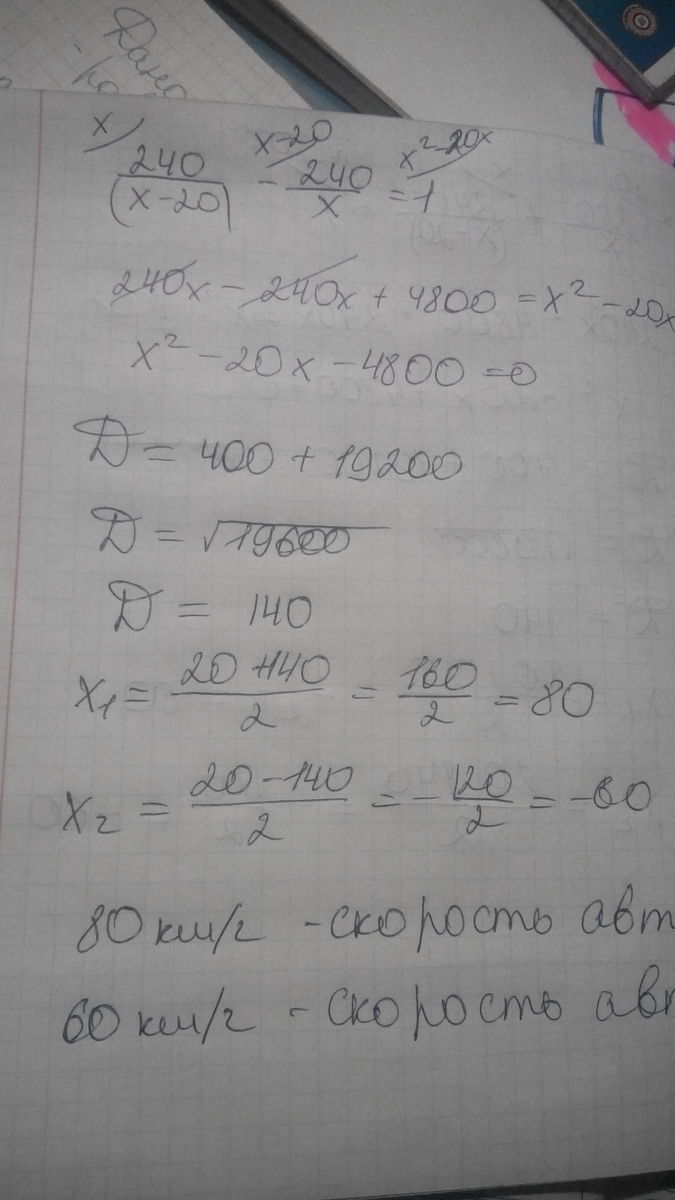 Дано
x) x-20 x²-20x
240/(x-20) - 240/x = 1
240x - 240x + 4800 = x² - 20x
x² - 20x - 4800 = 0
D = 400 + 19200
D = √19600
D = 140
x₁ = (20+140)/2 = 160/2 = 80
x₂ = (20-140)/2 = -120/2 = -60
80 км/г - скорость авт
60 км/г - скорость авт